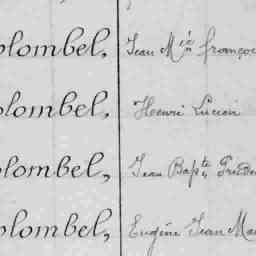 olombel, Jean M.ie françoi
olombel, Henri Lucien
olombel, Jean Bapte, Frédé
olombel, Eugène Jean Ma